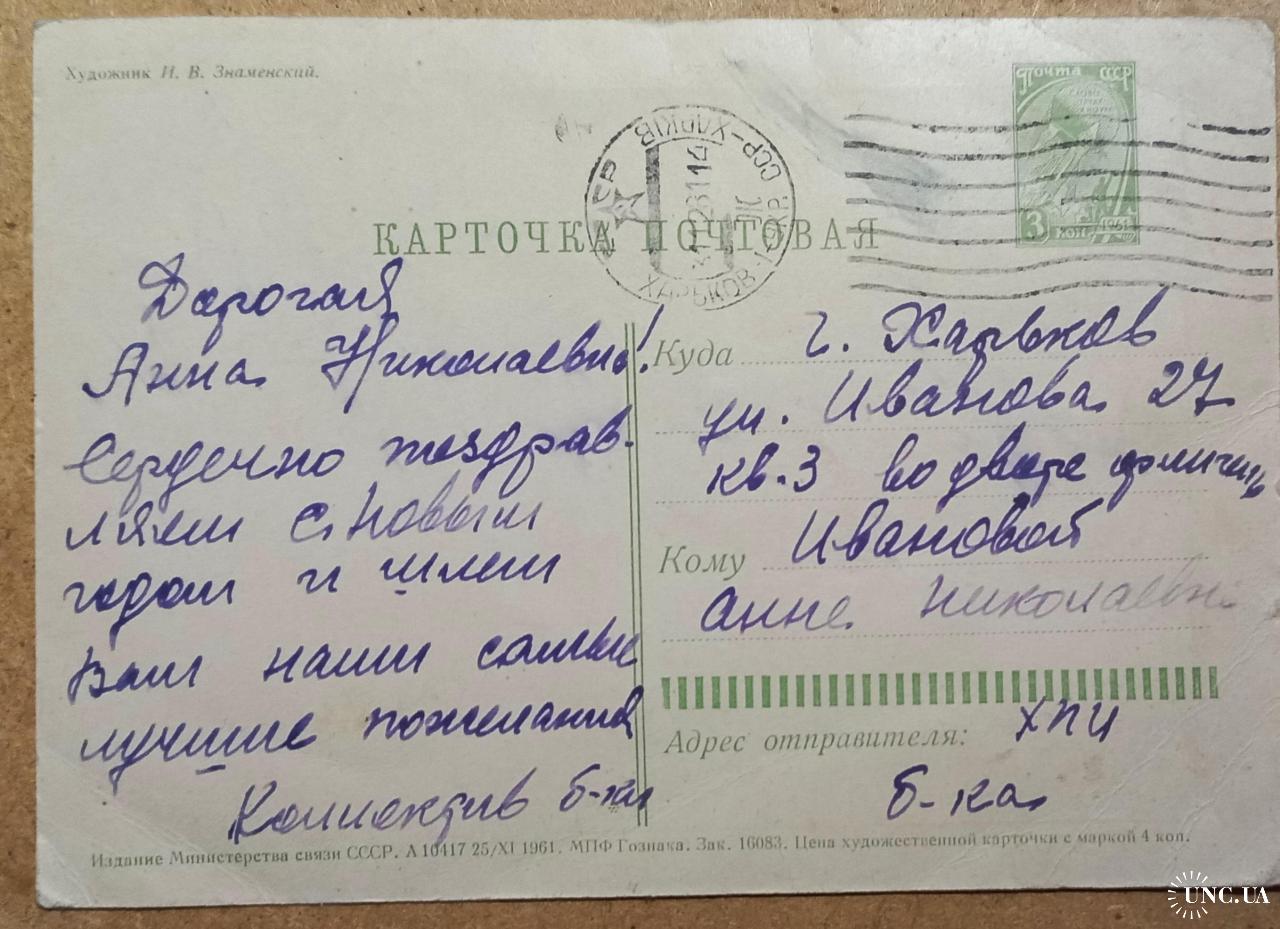 Художник И. В. Знаменский.
Почта СССР
3 коп. 1961
ХАРЬКОВ УКР. ССР-ХАРКІВ
КАРТОЧКА ПОЧТОВАЯ
Дорогая
Анна Николаевна!
Сердечно поздрав-
ляем с Новым
годом и шлем
Вам наши самые
лучшие пожелания
Коллектив б-ки
Куда г. Харьков
ул. Иванова 27
кв. 3 во дворе флигель
Кому Ивановой
Анне Николаевне
Адрес отправителя: ХПИ
б-ка
Издание Министерства связи СССР. А 10417 25/XI 1961. МПФ Гознака. Зак. 16083. Цена художественной карточки с маркой 4 коп.
UNC.UA